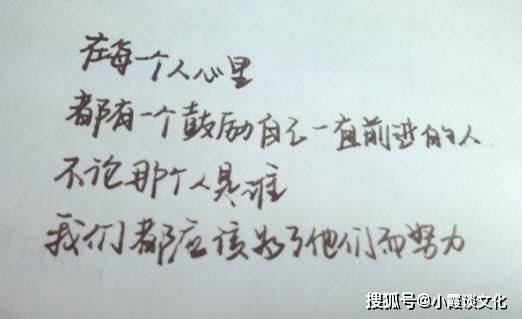 在每个人心里
都有一个鼓励自己一直前进的人
不论那个人是谁
我们都应该为了他们而努力
搜狐号@小霞谈文化